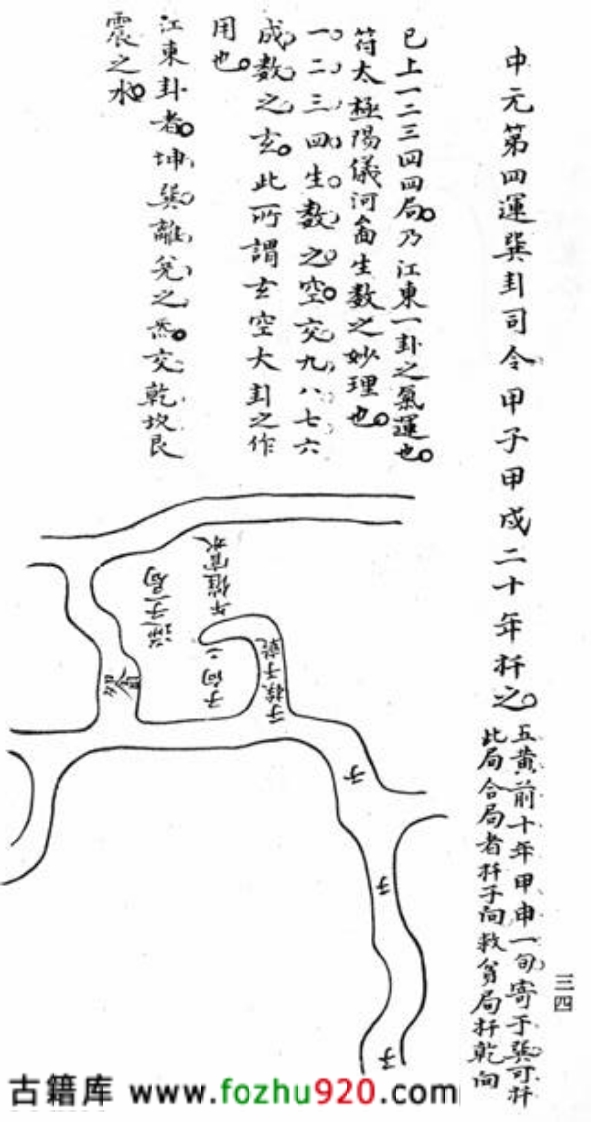 中元第四運巽卦司令甲子甲戌二十年扦之。
五黃前十年甲申一旬寄于巽可扦
此局合局者扦子向救貧局扦乾向
三四
已上一二三四四局。乃江東一卦之氣運也。
符太極陽儀河圖生數之妙理也。
一二三四生數之空。交九八七六
成數之玄。此所謂玄空大卦之作
用也。
江東卦者。坤巽離兌之炁。交乾坎艮
震之水。
子向二
子接子乾
子
子
子
古籍库 www.fozhu920.com